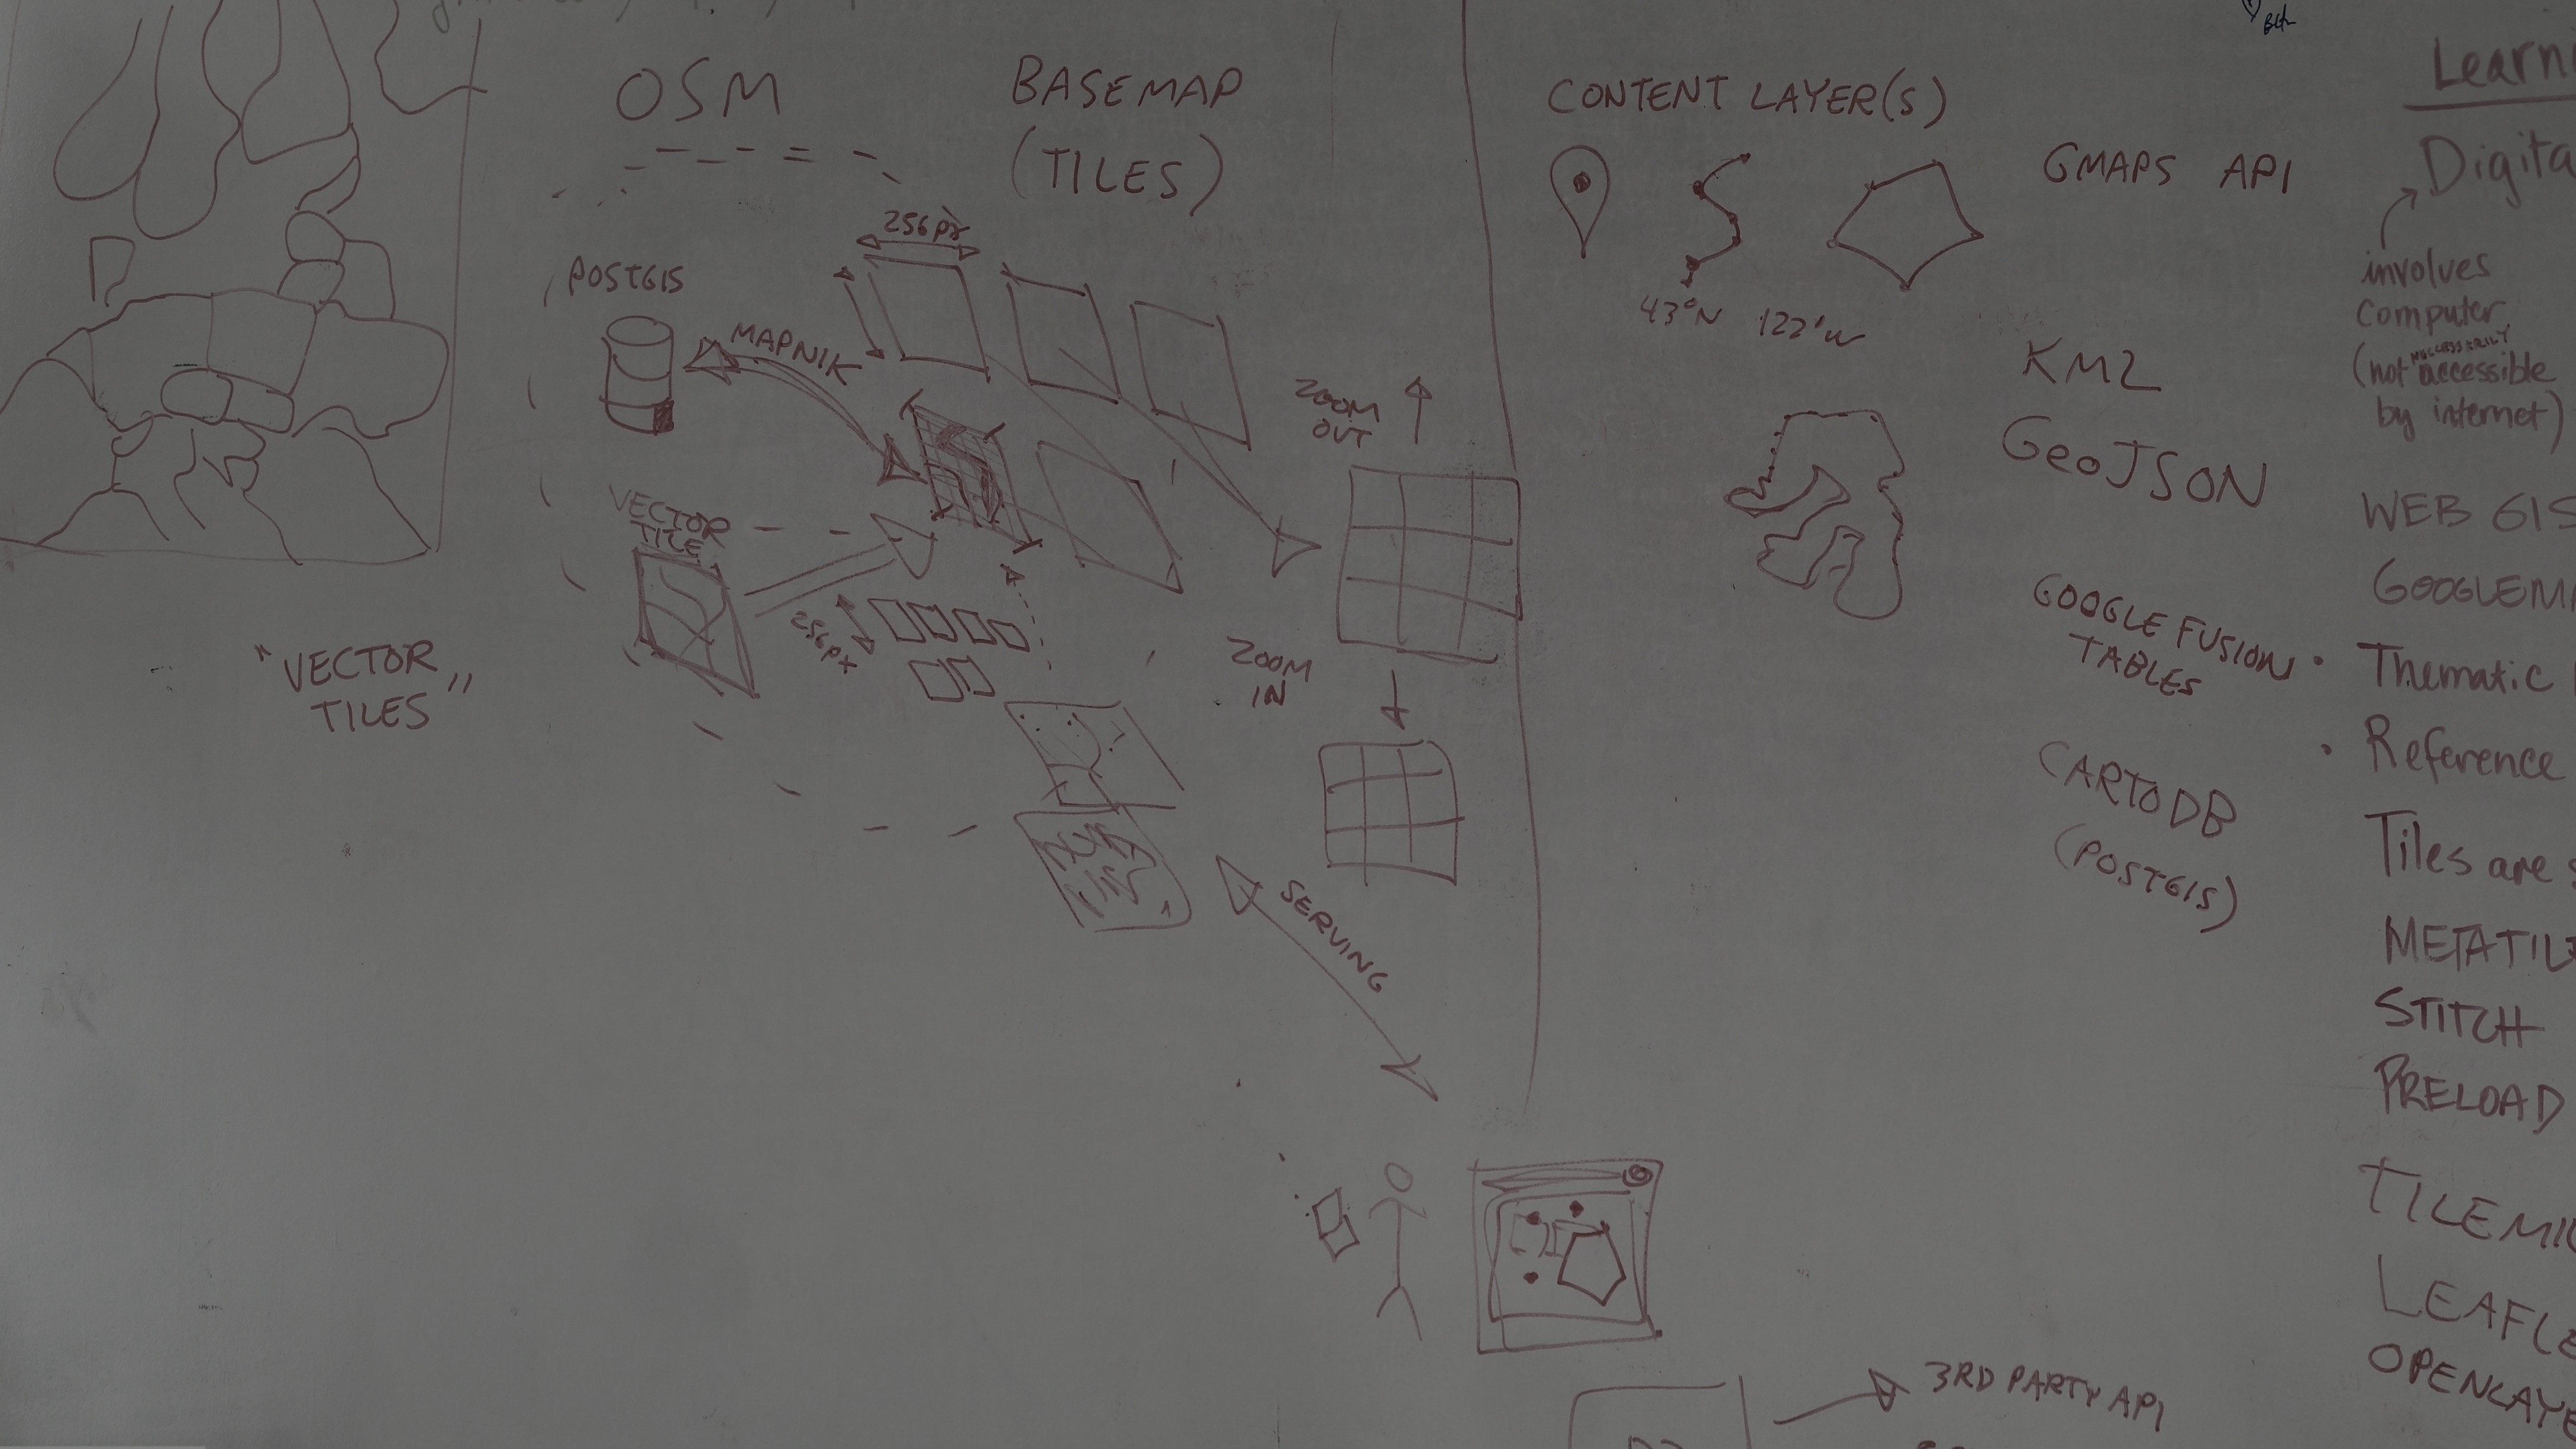 OSM
BASEMAP
(TILES)
256px
POSTGIS
MAPNIK
VECTOR
TILE
256px
ZOOM
OUT
ZOOM
IN
"VECTOR
TILES"
SERVING
CONTENT LAYER(S)
43°N 122°W
GMAPS API
KMZ
GeoJSON
GOOGLE FUSION
TABLES
CARTODB
(POSTGIS)
3RD PARTY API
Learni
Digita
involves
computer
(not accessible
by internet)
WEB GIS
GOOGLEMA
• Thematic
• Reference
Tiles are s
METATILE
STITCH
PRELOAD
TILEMI
LEAFLE
OPENLAYE